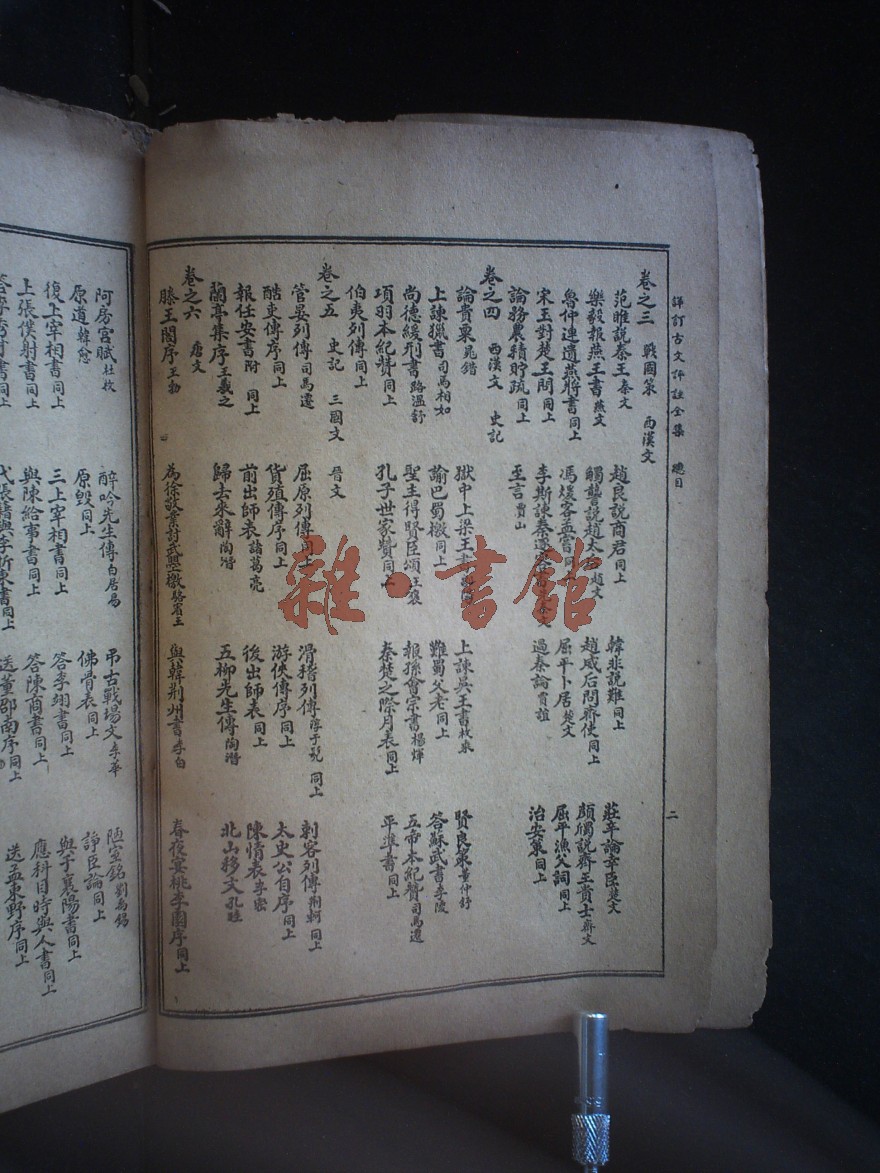 詳訂古文評註全集 總目 二
卷之三 戰國策 西漢文
范雎說秦王 秦文 趙良說商君 同上 韓非說難 同上 莊辛論幸臣 楚文
樂毅報燕王書 燕文 觸讋說趙太后 趙文 趙威后問齊使 同上 顏斶說齊王貴士 齊文
魯仲連遺燕將書 同上 馮煖客孟嘗 同上 屈平卜居 楚文 屈平漁父詞 同上
宋玉對楚王問 同上 李斯諫秦逐客書 秦文 過秦論 賈誼 治安策 同上
論務農積貯疏 同上 至言 賈山
卷之四 西漢文 史記
論貴粟 晁錯 獄中上梁王書 上諫吳王書 枚乘 賢良策 董仲舒
上諫獵書 司馬相如 諭巴蜀檄 同上 難蜀父老 同上 答蘇武書 李陵
尚德緩刑書 路溫舒 聖主得賢臣頌 王褒 報孫會宗書 楊惲 五帝本紀贊 司馬遷
項羽本紀贊 同上 孔子世家贊 同上 秦楚之際月表 同上 平準書 同上
伯夷列傳 同上
卷之五 史記 三國文 晉文
管晏列傳 司馬遷 屈原列傳 同上 滑稽列傳 淳于髡 同上 刺客列傳 荆軻 同上
酷吏傳序 同上 貨殖傳序 同上 游俠傳序 同上 太史公自序 同上
報任安書 附 同上 前出師表 諸葛亮 後出師表 同上 陳情表 李密
蘭亭集序 王羲之 歸去來辭 陶潛 五柳先生傳 陶潛 北山移文 孔稚
卷之六 唐文
滕王閣序 王勃 為徐敬業討武曌檄 駱賓王 與韓荆州書 李白 春夜宴桃李園序 同上
阿房宮賦 杜牧 醉吟先生傳 白居易 弔古戰場文 李華 陋室銘 劉禹錫
原道 韓愈 原毀 同上 佛骨表 同上 諍臣論 同上
復上宰相書 同上 三上宰相書 同上 答李翊書 同上 與于襄陽書 同上
上張僕射書 同上 與陳給事書 同上 答陳商書 同上 應科目時與人書 同上
代張籍與李浙東書 同上 送董邵南序 同上 送孟東野序 同上
雜·書館